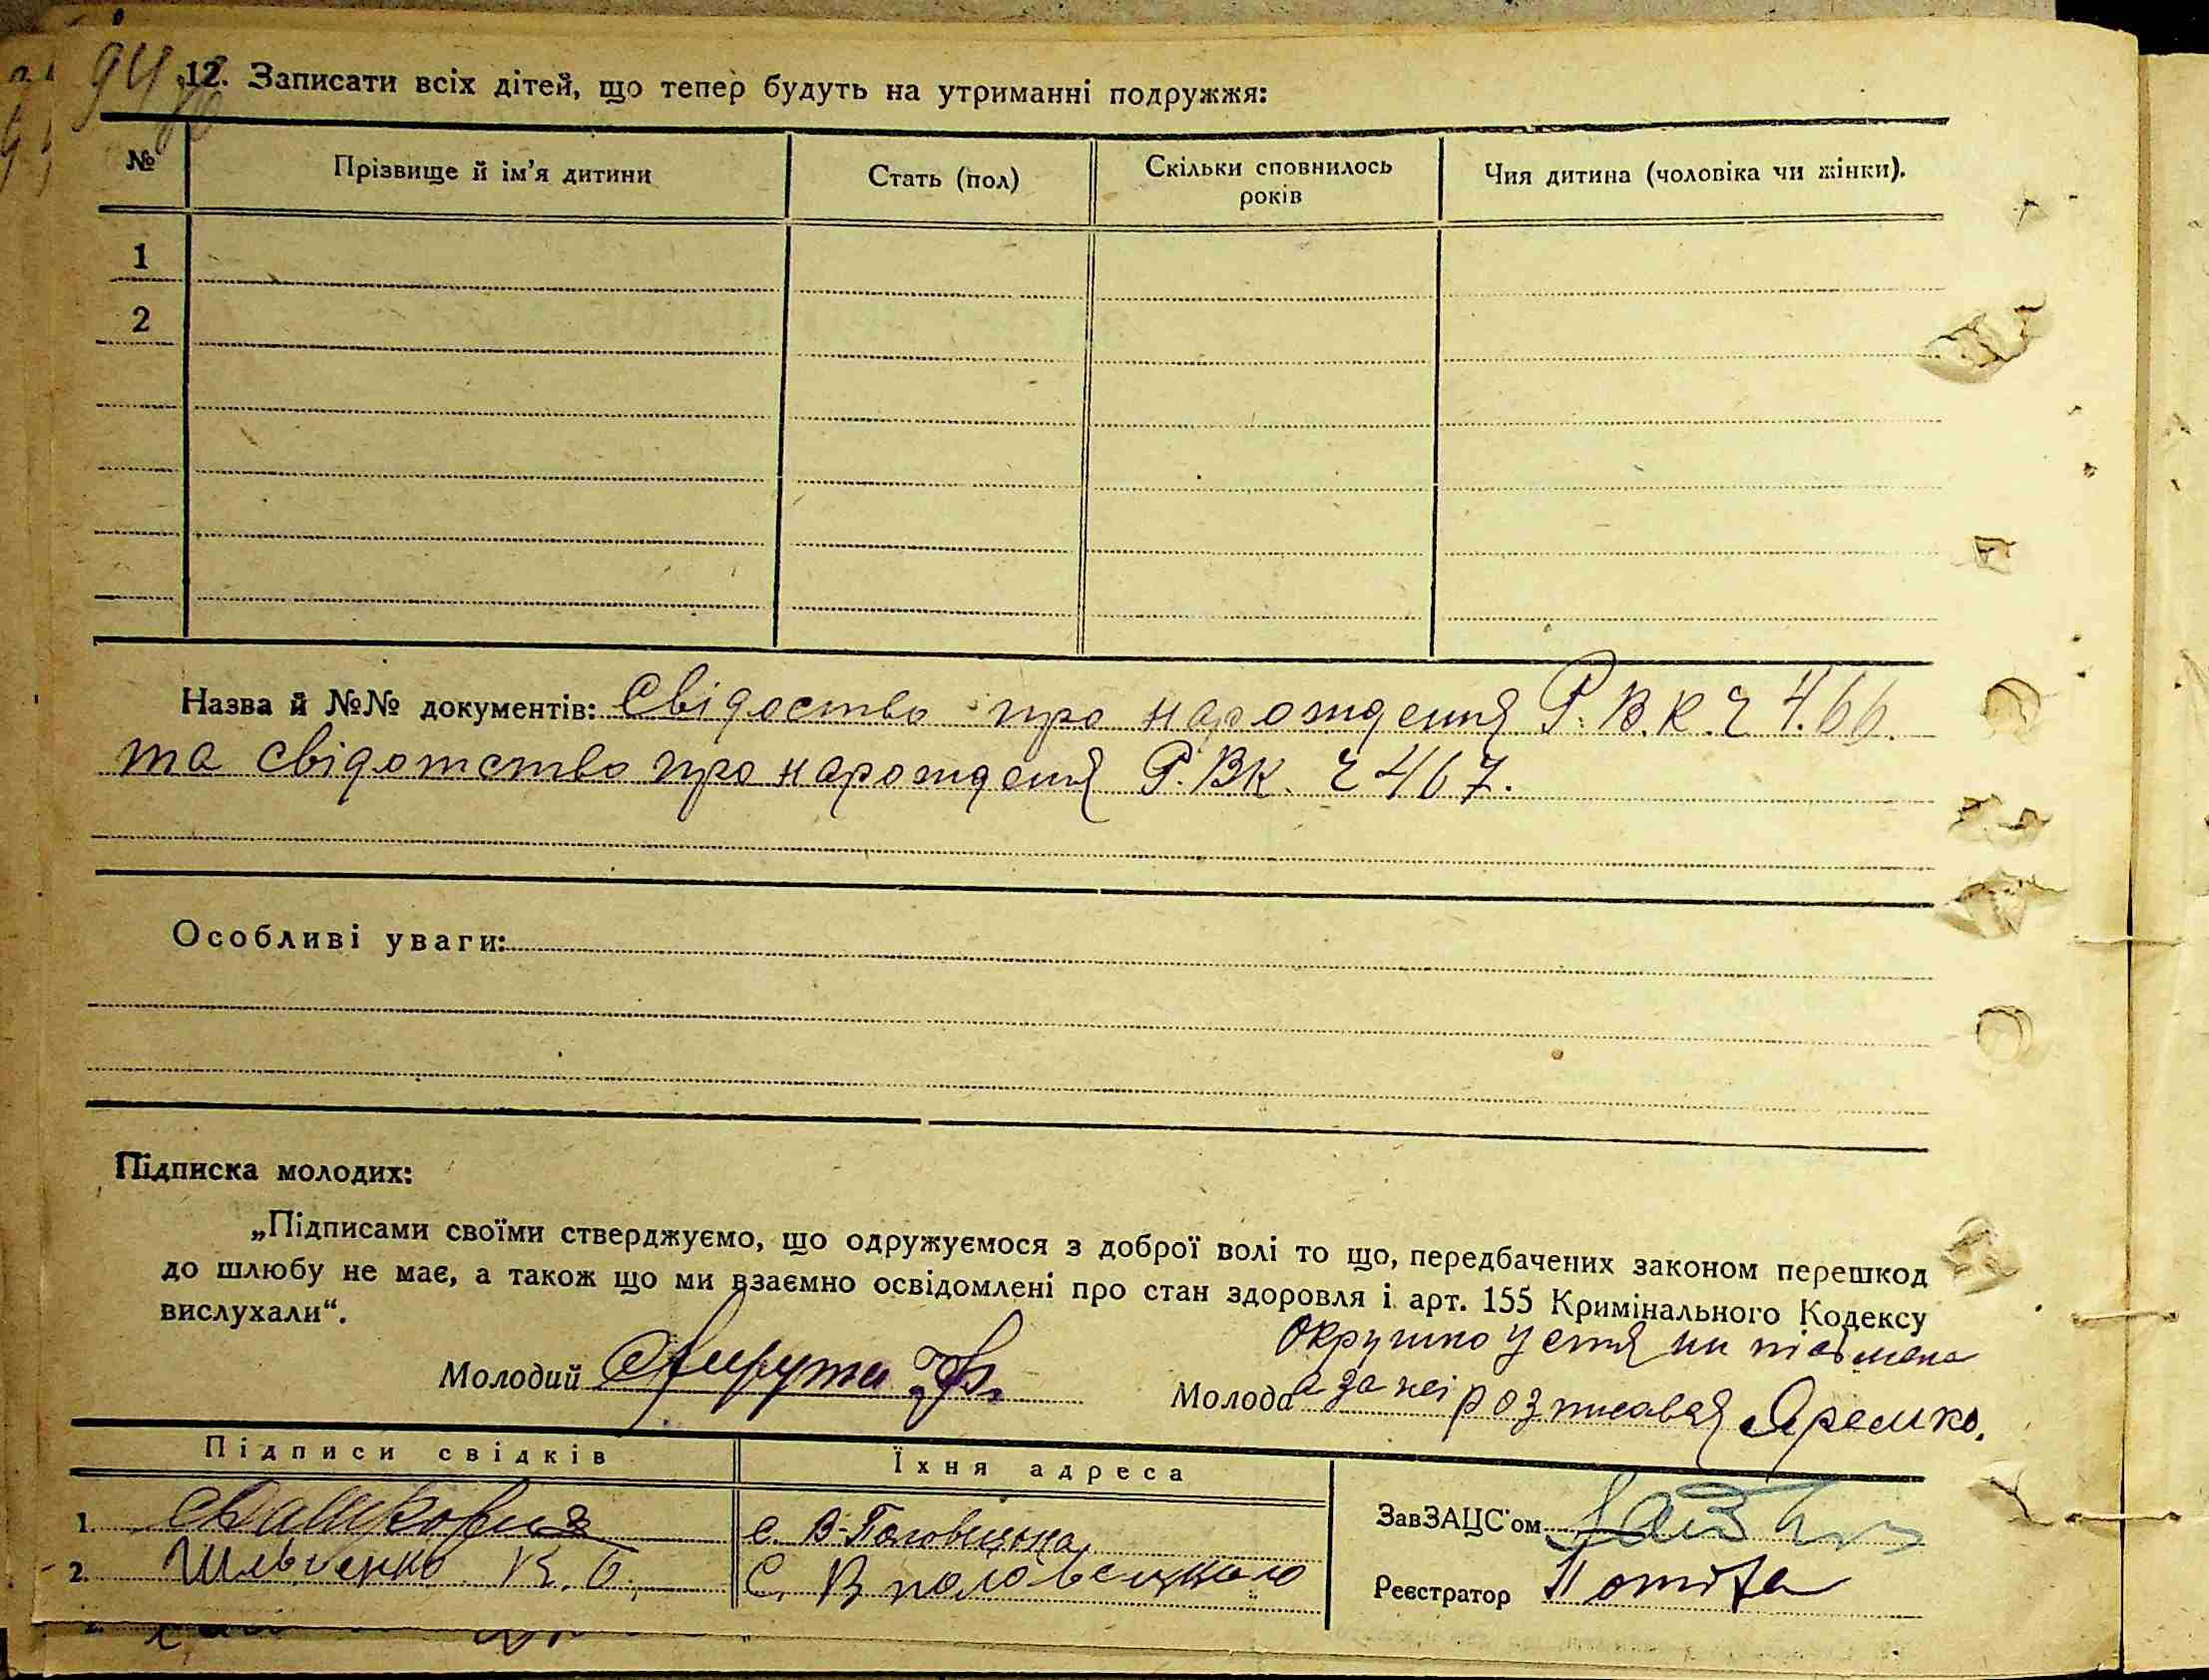 12. Записати всіх дітей, що тепер будуть на утриманні подружжя:
№ Прізвище й ім’я дитини Стать (пол) Скільки сповнилось років Чия дитина (чоловіка чи жінки).
1
2
Назва й №№ документів: Свідоство про нарождення Р.В.К. Ч 466.
та свідотство про нарождення Р.ВК. Ч 467.
Особливі уваги:
Підписка молодих:
„Підписами своїми стверджуємо, що одружуємося з доброї волі то що, передбачених законом перешкод
до шлюбу не має, а також що ми взаємно освідомлені про стан здоровля і арт. 155 Кримінального Кодексу
вислухали“.
Молодий
Молода а за неі розписався Яремко.
Підписи свідків Їхня адреса
1. с. В-Половецька
2. Шевченко К. С. В половецького
ЗавЗАЦС’ом
Реєстратор